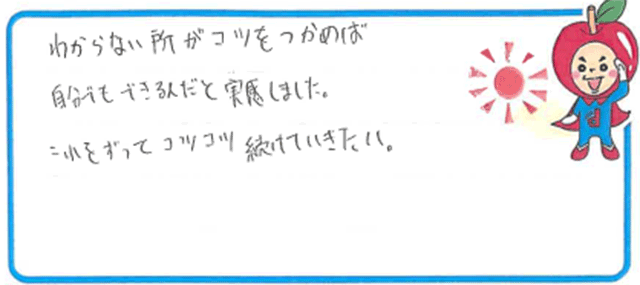 わからない所がコツをつかめば
自分でもできるんだと実感しました。
これをずってコツコツ続けていきたい。